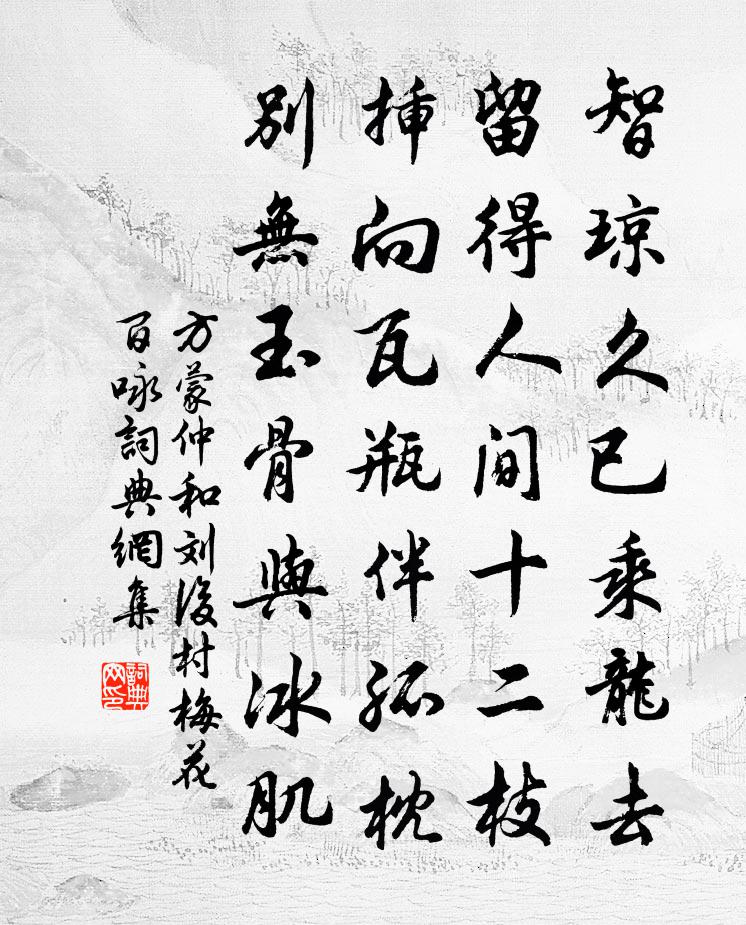 智琼久已乘龍去
留得人間十二枝
挿向瓦瓶伴孤枕
别無玉骨與冰肌
方蒙仲和刘後村梅花
百咏詞典網集
詞典
网印